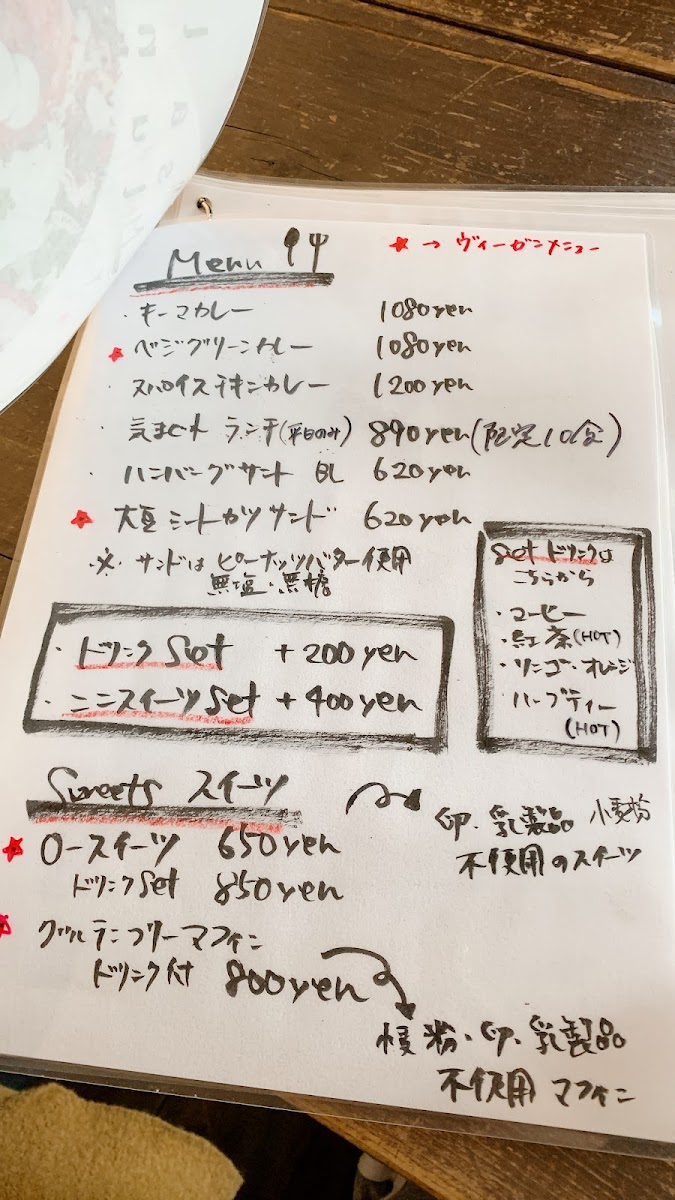 Menu
★ → ヴィーガンメニュー
・キーマカレー 1080yen
★ ・ベジグリーンカレー 1080yen
・スパイスチキンカレー 1200yen
・気まぐれ ランチ(平日のみ) 890yen(限定10食)
・ハンバーグサンド BL 620yen
★ 大豆ミートカツサンド 620yen
・※・サンドは ピーナッツバター使用
無塩・無糖
・ドリンク Set +200yen
・ミニスイーツ Set +400yen
Set ドリンクは
こちらから
・コーヒー
・紅茶(HOT)
・リンゴ・オレンジ
・ハーブティー
(HOT)
Sweets スイーツ
★ ロースイーツ 650yen
ドリンクSet 850yen
卵、乳製品 小麦粉
不使用のスイーツ
★ グルテンフリーマフィン
ドリンク付 800yen
粉・卵、乳製品
不使用 マフィン